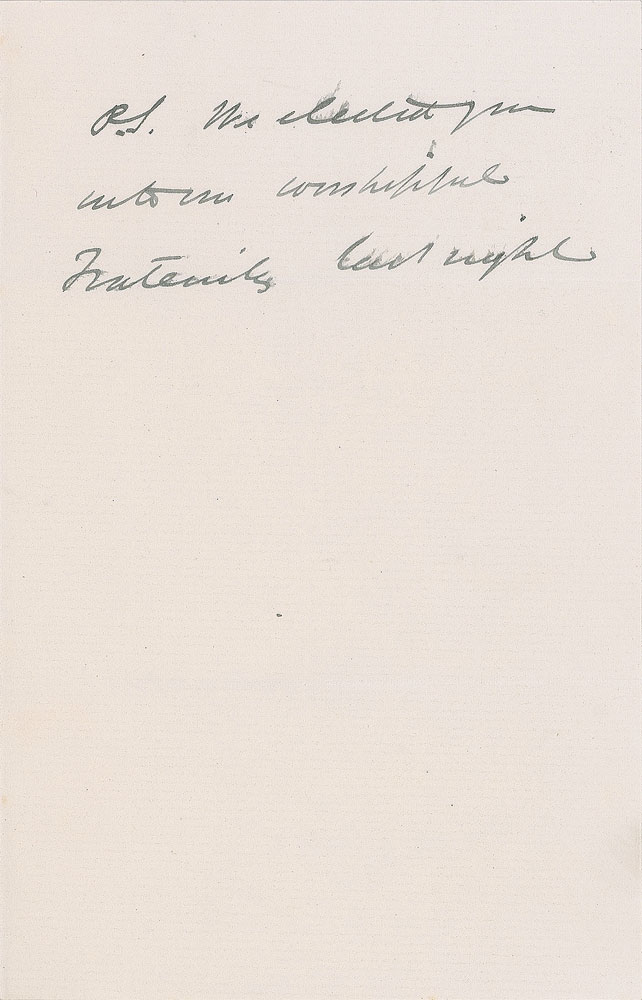 P.S. We elected you
into our worshipful
Fraternity last night